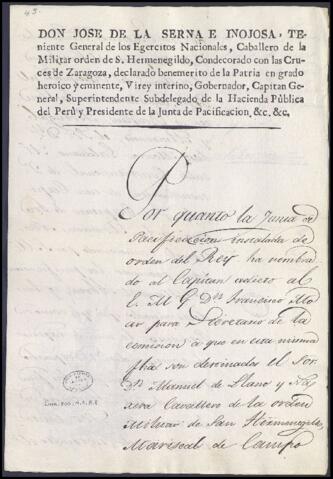 DON JOSE DE LA SERNA E INOJOSA, TE-
niente General de los Egercitos Nacionales, Caballero de la
Militar orden de S. Hermenegildo, Condecorado con las Cru-
ces de Zaragoza, declarado benemerito de la Patria en grado
heroico y eminente, Virey interino, Gobernador, Capitan Ge-
neral, Superintendente Subdelegado de la Hacienda Pública
del Perú y Presidente de la Junta de Pacificacion, &c. &c.
Por quanto la Junta de
Pacificacion instalada de
orden del Rey ha nombra
do al Capitan adicto al
E. M. G. Dn. Francisco
ar para Secretario de la
comision à que en esta misma
fha son destinados el Sor.
Dn. Manuel de Llano y Na
xera Cavallero de la orden
Militar de San Hermenegildo
Mariscal de Campo